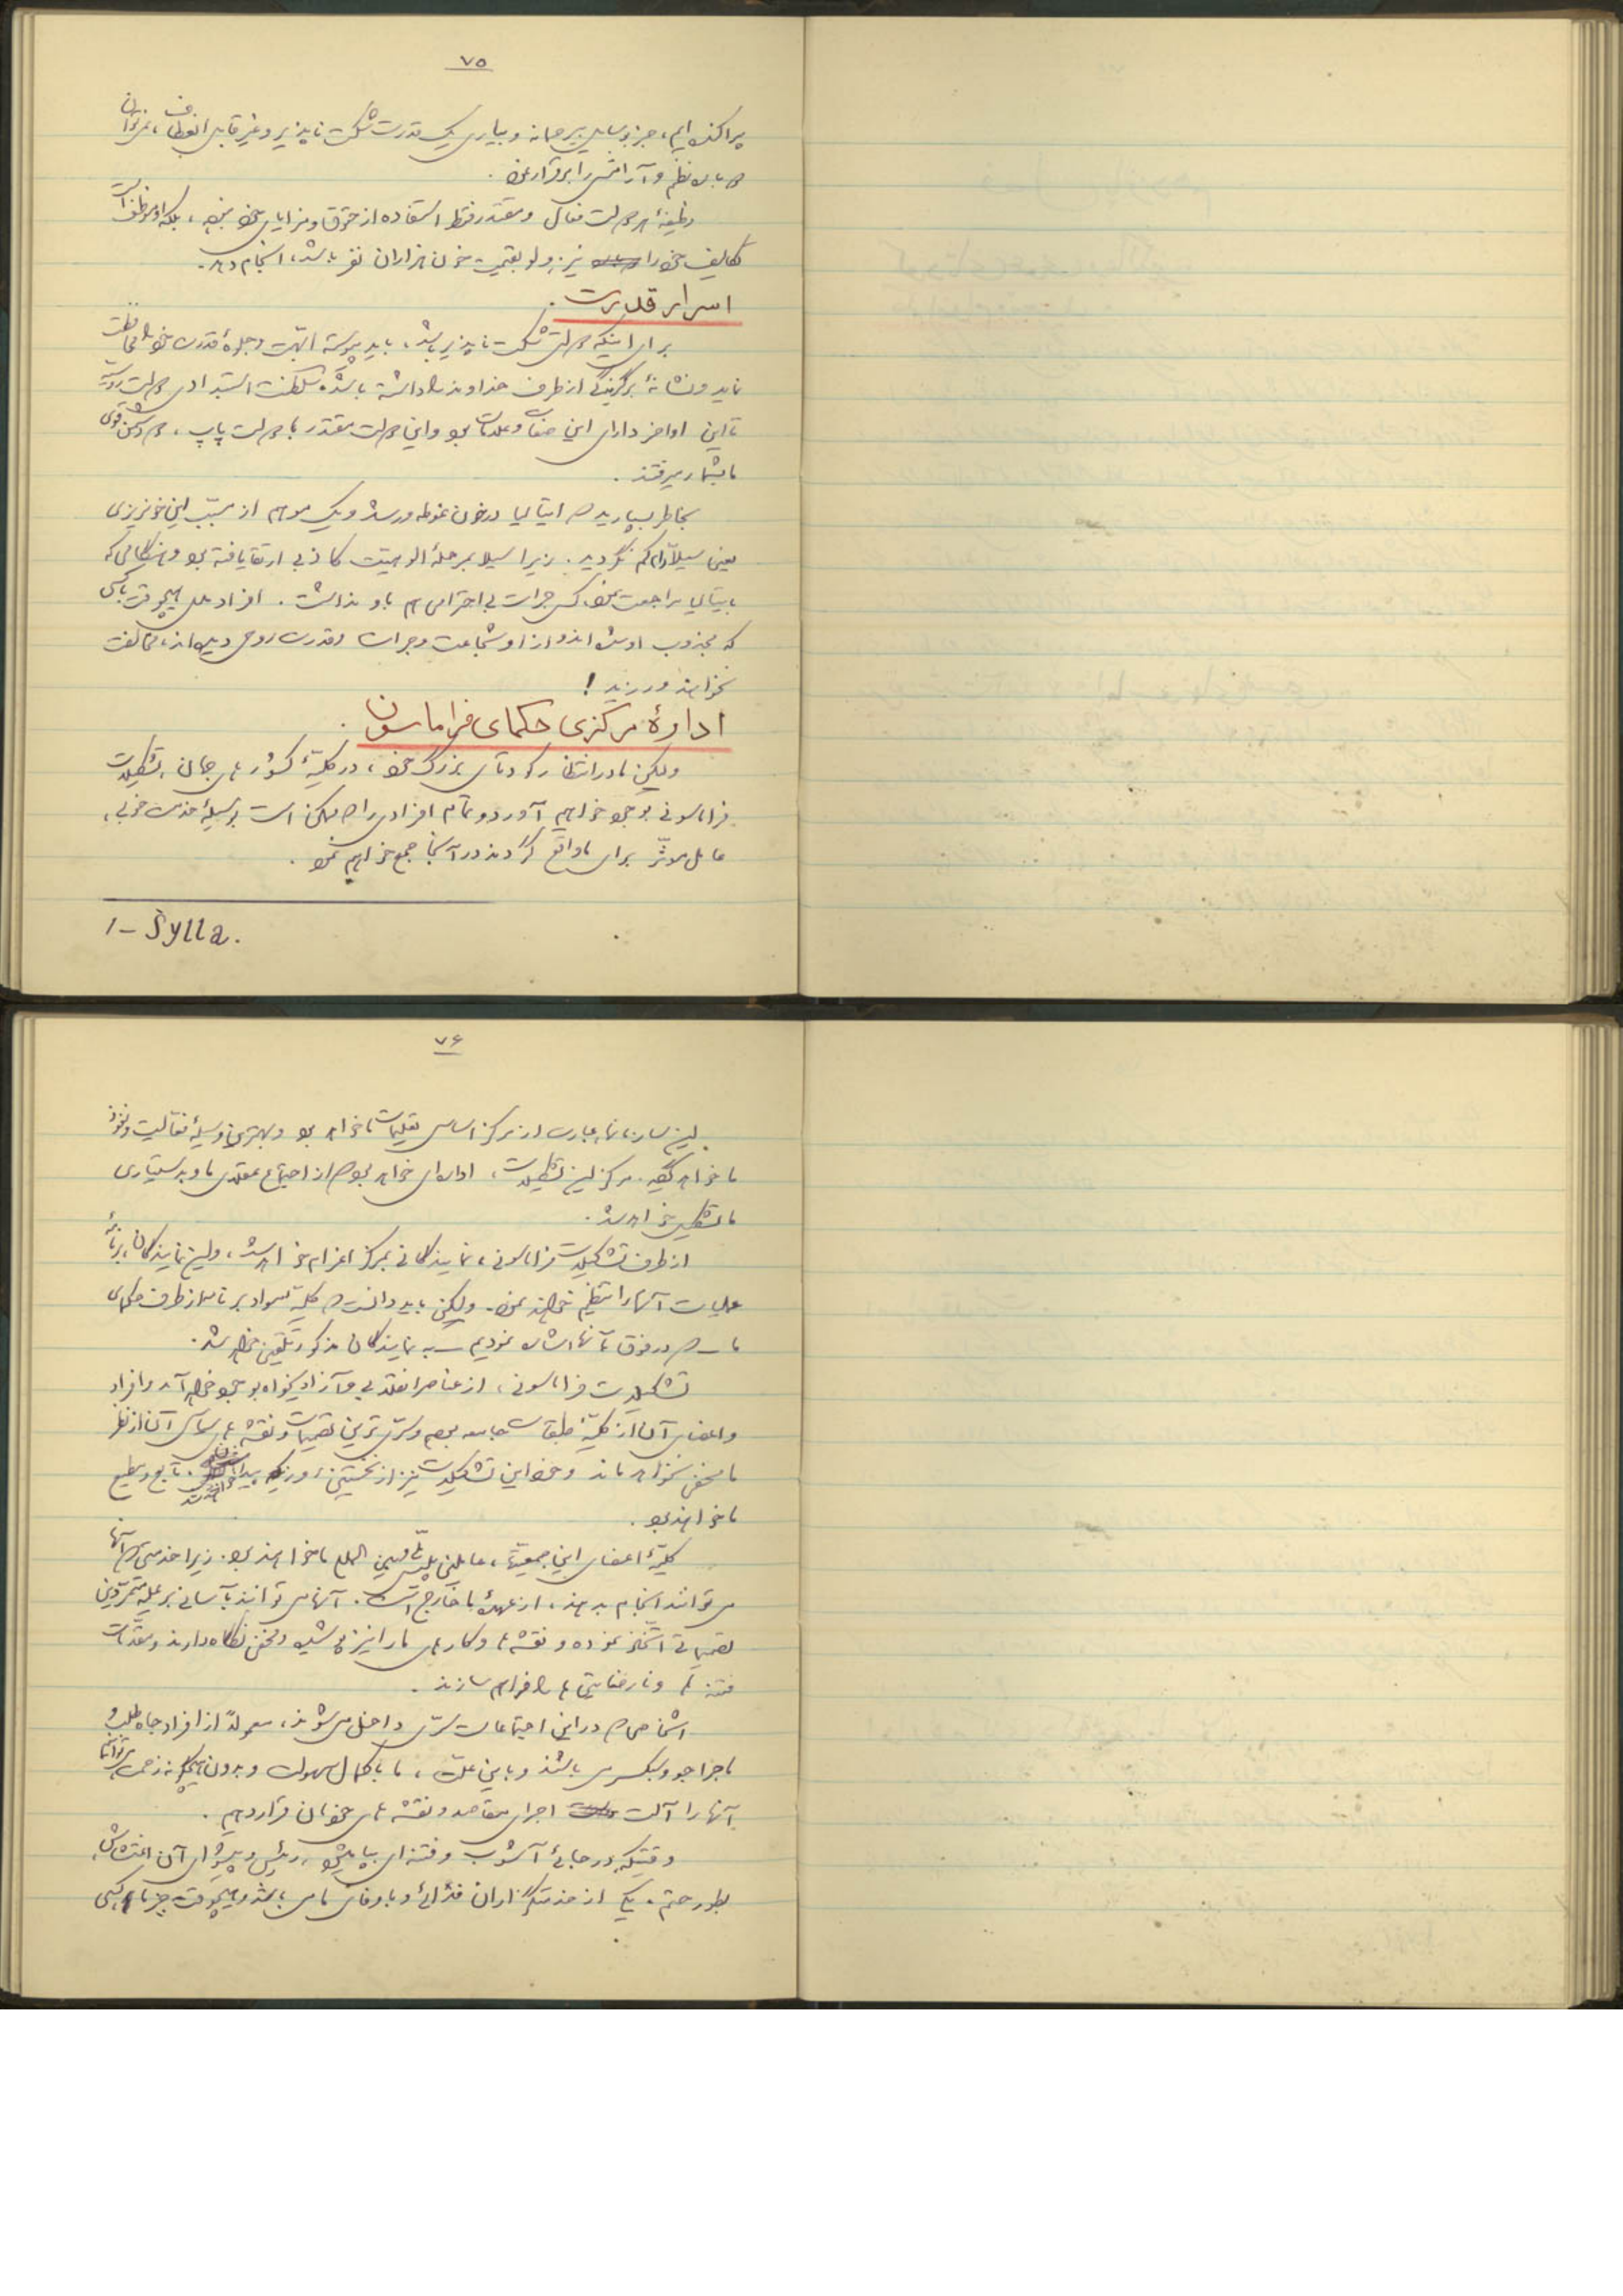 ۷۵
پراکنده ایم، جز بوسایل بیرحمانه و بیاری یک قدرت شکست ناپذیر و غیر قابل انعطاف، نمیتوان
نظم و آرامش را برقرار نمود .
وظیفهٔ هر دولت فعال و مقتدر فقط استفاده از حقوق و مزایای خود نبوده ، بلکه او موظف است
تکالیف خود را نیز، ولو بقیمت خون هزاران نفر باشد، انجام دهد .
اسرار قدرت .
برای اینکه دولتی شکست ناپذیر باشد، باید پیوسته ابهت و جلوهٔ قدرت خود را محافظت
نماید و نشانهٔ برگزیدگی از طرف خداوند را داشته باشد. سلطنت استبدادی دولت روسیه
تا این اواخر دارای این صفات و علامات بود و این دولت مقتدر با دولت پاپ ، دو دشمن قوی
ما بشمار میرفتند .
بخاطر بسپارید که ایتالیا در خون غوطه ور شد و یک مو هم از مسبب این خونریزی
یعنی سیلا(۱) کم نگردید . زیرا سیلا بمرحلهٔ الوهیت کاذبی ارتقا یافته بود و هنگامی که
بایتالیا مراجعت نمود، کسی جرات بی احترامی هم باو نداشت . افراد ملل هیچوقت با کسی
که مجذوب او شده اند و از او شجاعت و جرات و قدرت روحی دیده اند، مخالفت
نخواهند ورزید !
ادارهٔ مرکزی حکمای فراماسون .
ولیکن ما در انتظار کودتای بزرگ خود ، در کلیهٔ کشور های جهان ، تشکیلات
فراماسونی بوجود خواهیم آورد و تمام افرادی را که ممکن است بوسیلهٔ خدمت خوبی،
عامل موثر برای ما واقع گردند در آنجا جمع خواهیم نمود .
1 – Sylla.
۷۶
این سازمانها، عبارت از مرکز اساسی تعلیمات ما خواهد بود و بهترین وسیلهٔ فعالیت و نفوذ
ما خواهد گردید . مرکز این تشکیلات ، اداره ای خواهد بود که از اجتماع عقلای ما و بدستیاری
ما تشکیل خواهد شد .
از طرف تشکیلات فراماسونی، نمایندگانی بمرکز اعزام خواهد شد ، و این نمایندگان، برنامهٔ
عملیات آنها را تنظیم خواهند نمود . ولیکن باید دانست که کلیهٔ مواد برنامه از طرف حکمای
ما – که در فوق بآنها اشاره نمودیم – به نمایندگان مذکور تلقین خواهد شد .
تشکیلات فراماسونی ، از عناصر انقلابی و آزادیخواه بوجود خواهد آمد و افراد
و اعضای آن از کلیهٔ طبقات جامعه بوده و سری ترین تصمیمات و نقشه های سیاسی آن از نظر
ما مخفی نخواهد ماند و خود این تشکیلات نیز از نخستین روز پیدایش . تابع و مطیع
ما خواهند بود .
کلیهٔ اعضای این جمعیتها ، عاملین پلیس ملی و بین الملل ما خواهند بود . زیرا خدمتی که آنها
می توانند انجام بدهند ، از عهدهٔ ما خارج است . آنها می توانند بآسانی بر علیه متمردین
تصمیماتی اتخاذ نموده و نقشه ها و کار های ما را نیز پوشیده و مخفی نگاه دارند و مقدمات
فتنه ها و نارضایتی ها را فراهم سازند .
اشخاصی که در این اجتماعات سری داخل می شوند ، معمولاً از افراد جاه طلب و
ماجراجو و سبکسر می باشند و باین علت ، ما با کمال سهولت و بدون هیچگونه زحمت می توانیم
آنها را آلت اجرای مقاصد و نقشه های خودمان قرار دهیم .
وقتیکه در جائی آشوب و فتنه ای بپا میشود ، رئیس و پیشوای آن اغتشاش ،
بطور حتم ، یکی از خدمتگزاران فدائی و با وفای ما می باشد و هیچوقت جز ما ، کسی